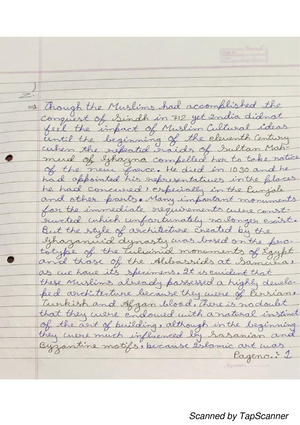 2.)
⇒ Though the Muslims had accomplished the
conquest of Sindh in 712 yet India didnot
feel the impact of Muslim Cultural ideas
until the beginning of the eleventh Century
when the repeated raids of Sultan Mah-
mud of Ghazna compelled her to take notice
of the new force. He died in 1030 and he
had appointed his representatives in the places
he had concured, especially in the Punjab
and other parts. Many important monuments
for the immediate requirements were const-
ructed which unfortunately no longer exist.
But the style of architecture created by the
Ghaznavid dynasty was based on the pro-
totype of the Tulunid monuments of Egypt
and those of the Abbassids at Samurra,
as we have its specimens. It is evident that
these Muslims already possessed a highly develo-
ped architecture because they were of Persian,
Turkish and Afgan blood. There is no doubt
that they were endowed with a natural instinct
of the art of building, although in the beginning
they were much influenced by Sasanian and
Byzantine motifs, because Islamic art was
Page no.: 1
Scanned by TapScanner